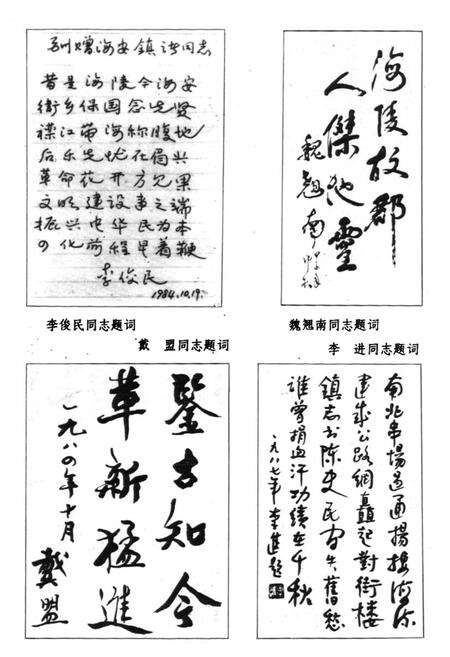 别赠海安镇诸同志
昔是海陵今海安
衛乡保国念先贤
襟江带海称腹地
后乐先忧在局兴
革命花开方兄果
文明建设事之端
振兴中华民为本
四化前程早着鞭
李俊民
1984.10.19.
李俊民同志题词
海陵故郡
人傑地靈
魏翘南
魏翘南同志题词
戴 盟同志题词
鑒古知今
革新猛進
一九八〇年十月
戴盟
李 进同志题词
南北串場过通揚接海尔
建成公路網矗起對街楼
鎮志书陈史民间失舊愁
誰曾捐血汗功績在千秋
一九八七年李進题